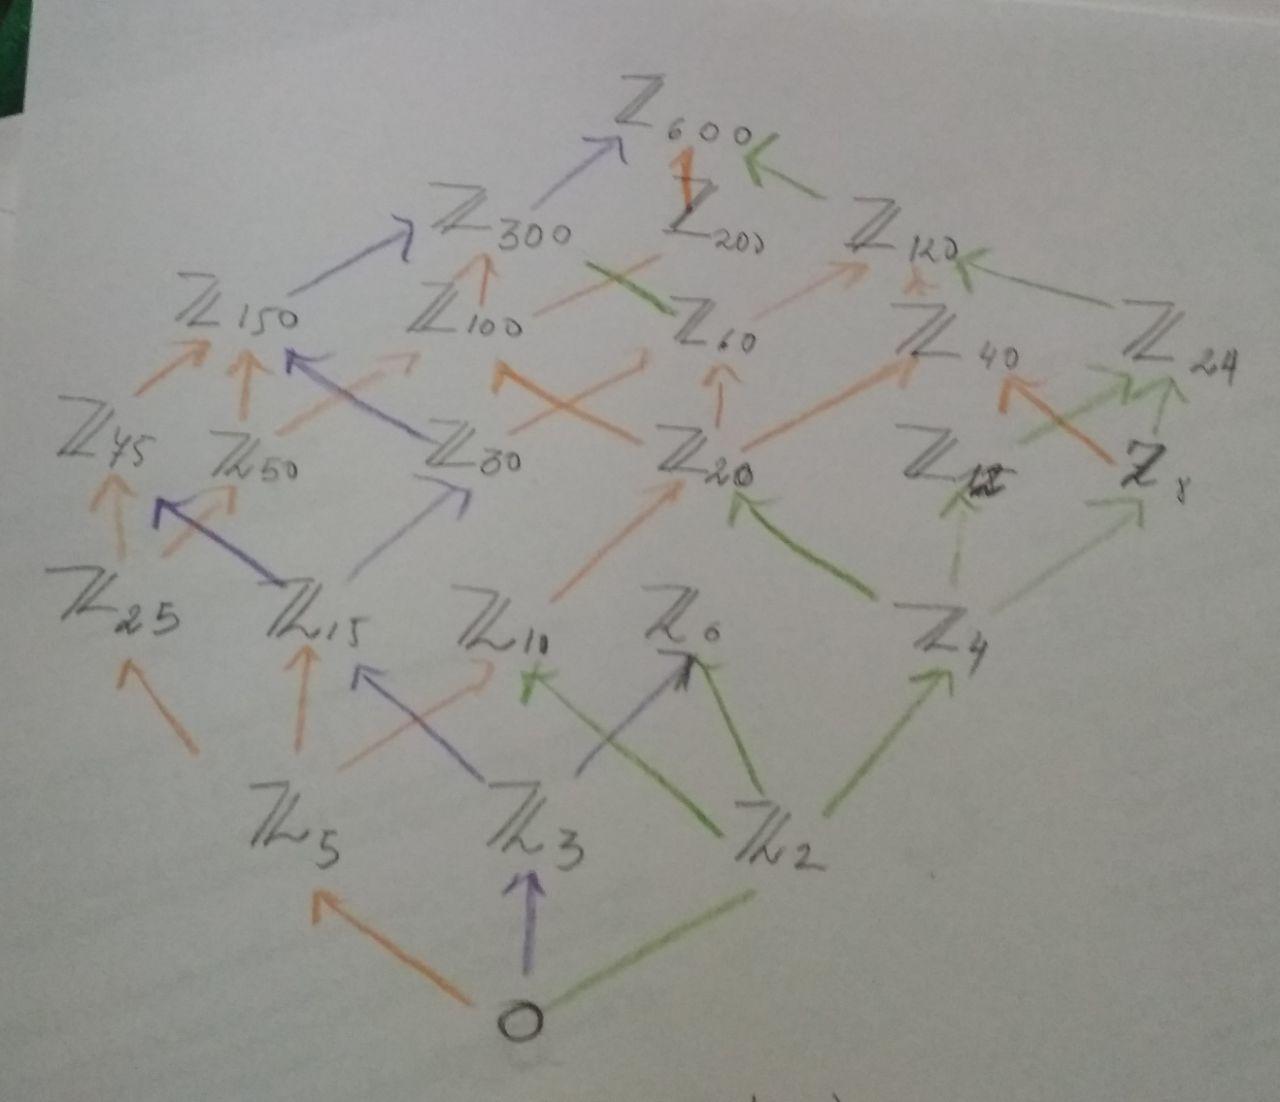 ℤ600
ℤ300 ℤ200 ℤ120
ℤ150 ℤ100 ℤ60 ℤ40 ℤ24
ℤ75 ℤ50 ℤ30 ℤ20 ℤ12 ℤ8
ℤ25 ℤ15 ℤ10 ℤ6 ℤ4
ℤ5 ℤ3 ℤ2
0